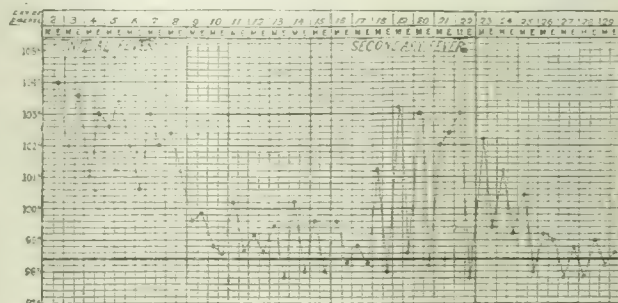 2 3 4 5 6 7 8 9 10 11 12 13 14 15 16 17 18 19 20 21 22 23 24 25 26 27 28 29
M E M E M E M E M E M E M E M E M E M E M E M E M E M E M E M E M E M E M E M E M E M E M E M E M E M E M E M E
INITIAL FEVER SECONDARY FEVER
105°
103°
102°
101°
100°
99°
98°